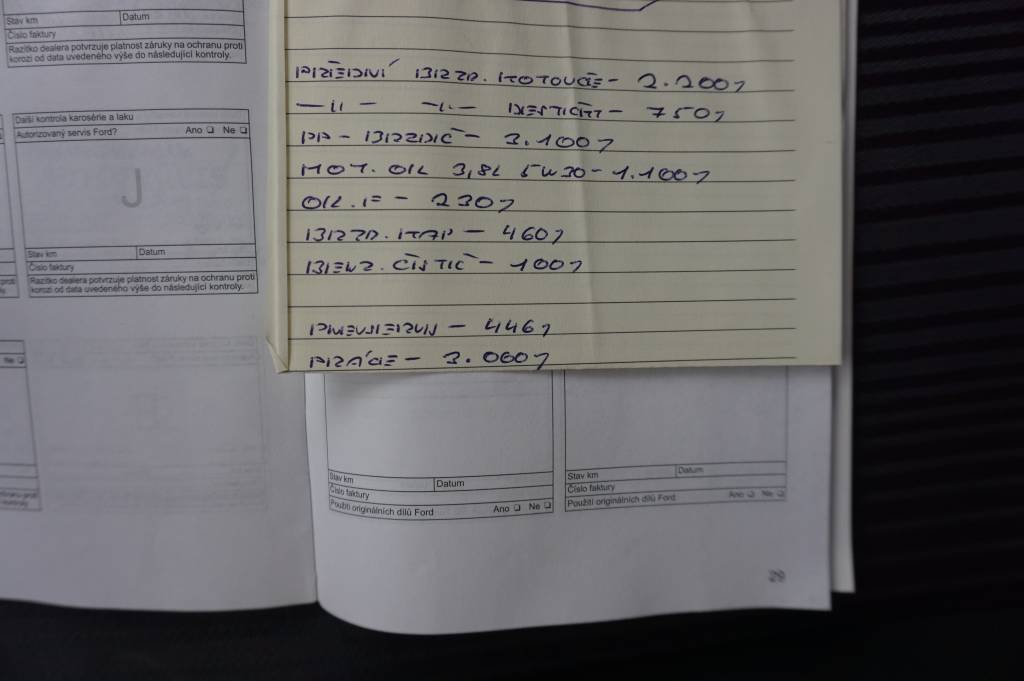 Stav km Datum
Číslo faktury
Razítko dealera potvrzuje platnost záruky na ochranu proti
korozi od data uvedeného výše do následující kontroly.
Další kontrola karosérie a laku
Autorizovaný servis Ford? Ano Ne
J
Stav km Datum
Číslo faktury
Razítko dealera potvrzuje platnost záruky na ochranu proti
korozi od data uvedeného výše do následující kontroly.
Ne
PŘEDNÍ BRZD. KOTOUČE - 2.200,
-II- -II- DESTIČKY - 750,
PP - BRZDIČ - 3.100,
MOT. OIL 3,8L 5W30 - 1.100,
OIL. F - 230,
BRZD. KAP - 460,
BENZ. ČISTIČ - 100,
PNEUSERVIS - 446,
PRÁCE - 3.060,
Stav km Datum
Číslo faktury
Použití originálních dílů Ford Ano Ne
Stav km Datum
Číslo faktury
Použití originálních dílů Ford Ano Ne
29